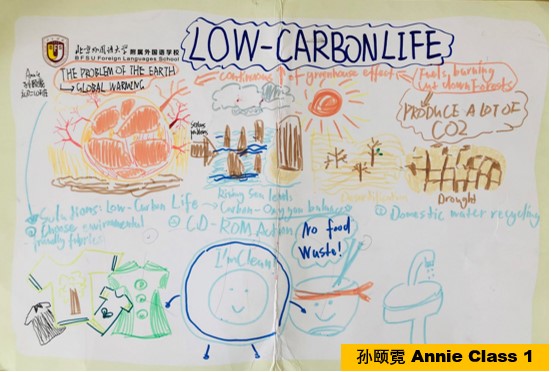 北京外国语大学附属外国语学校
BFSU Foreign Languages School
LOW-CARBON LIFE
Annie
THE PROBLEM OF THE EARTH
GLOBAL WARMING
continuous ↑ of greenhouse effect
Fuels burning
cut down forests
PRODUCE A LOT OF
CO2
Rising sea levels
Drought
Solutions: Low-Carbon Life → Carbon-Oxygen balance
② Choose environmental
friendly fabrics
CD-ROM Action
No food
Waste!
Domestic water recycling
I'm Clean!
孙颐霓 Annie Class 1